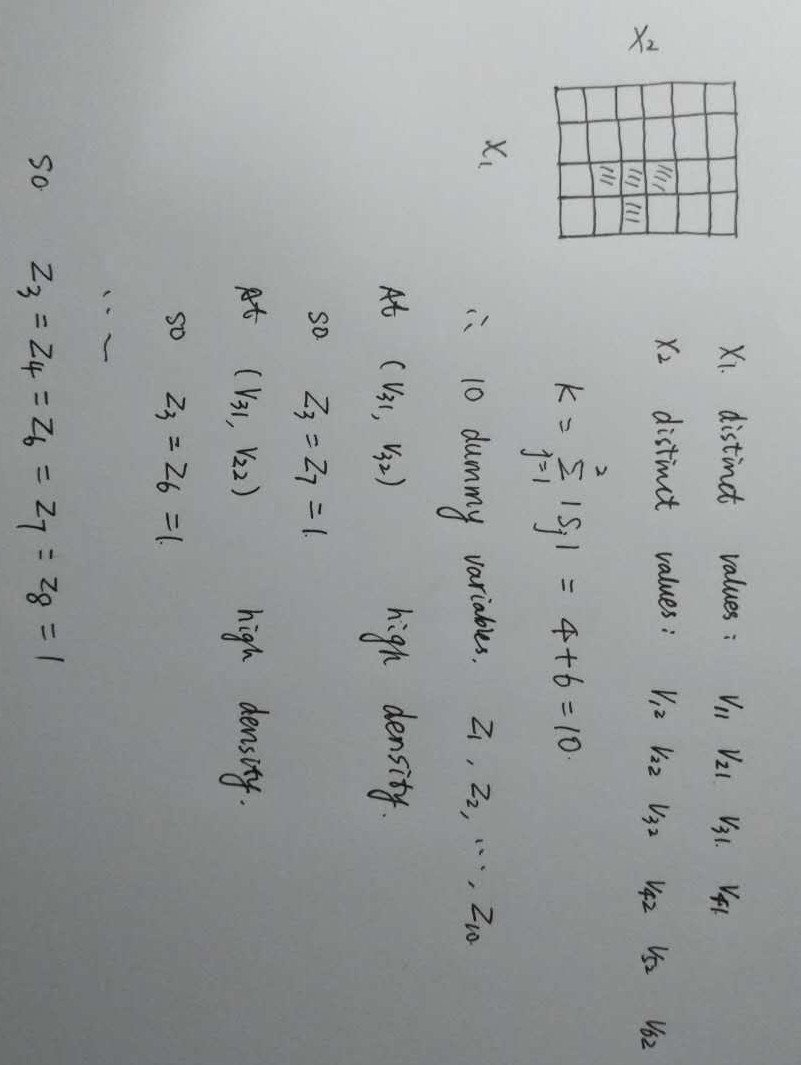 X₁ distinct values: V₁₁ V₂₁ V₃₁ V₄₁
X₂ distinct values: V₁₂ V₂₂ V₃₂ V₄₂ V₅₂ V₆₂
X₂
K = ∑_{j=1}^{2} |S_j| = 4+6 = 10.
X₁
∴ 10 dummy variables. Z₁, Z₂, ⋯, Z₁₀
At (V₃₁, V₃₂) high density.
so Z₃ = Z₇ = 1.
At (V₃₁, V₂₂) high density.
so Z₃ = Z₆ = 1.
...
so Z₃ = Z₄ = Z₆ = Z₇ = Z₈ = 1